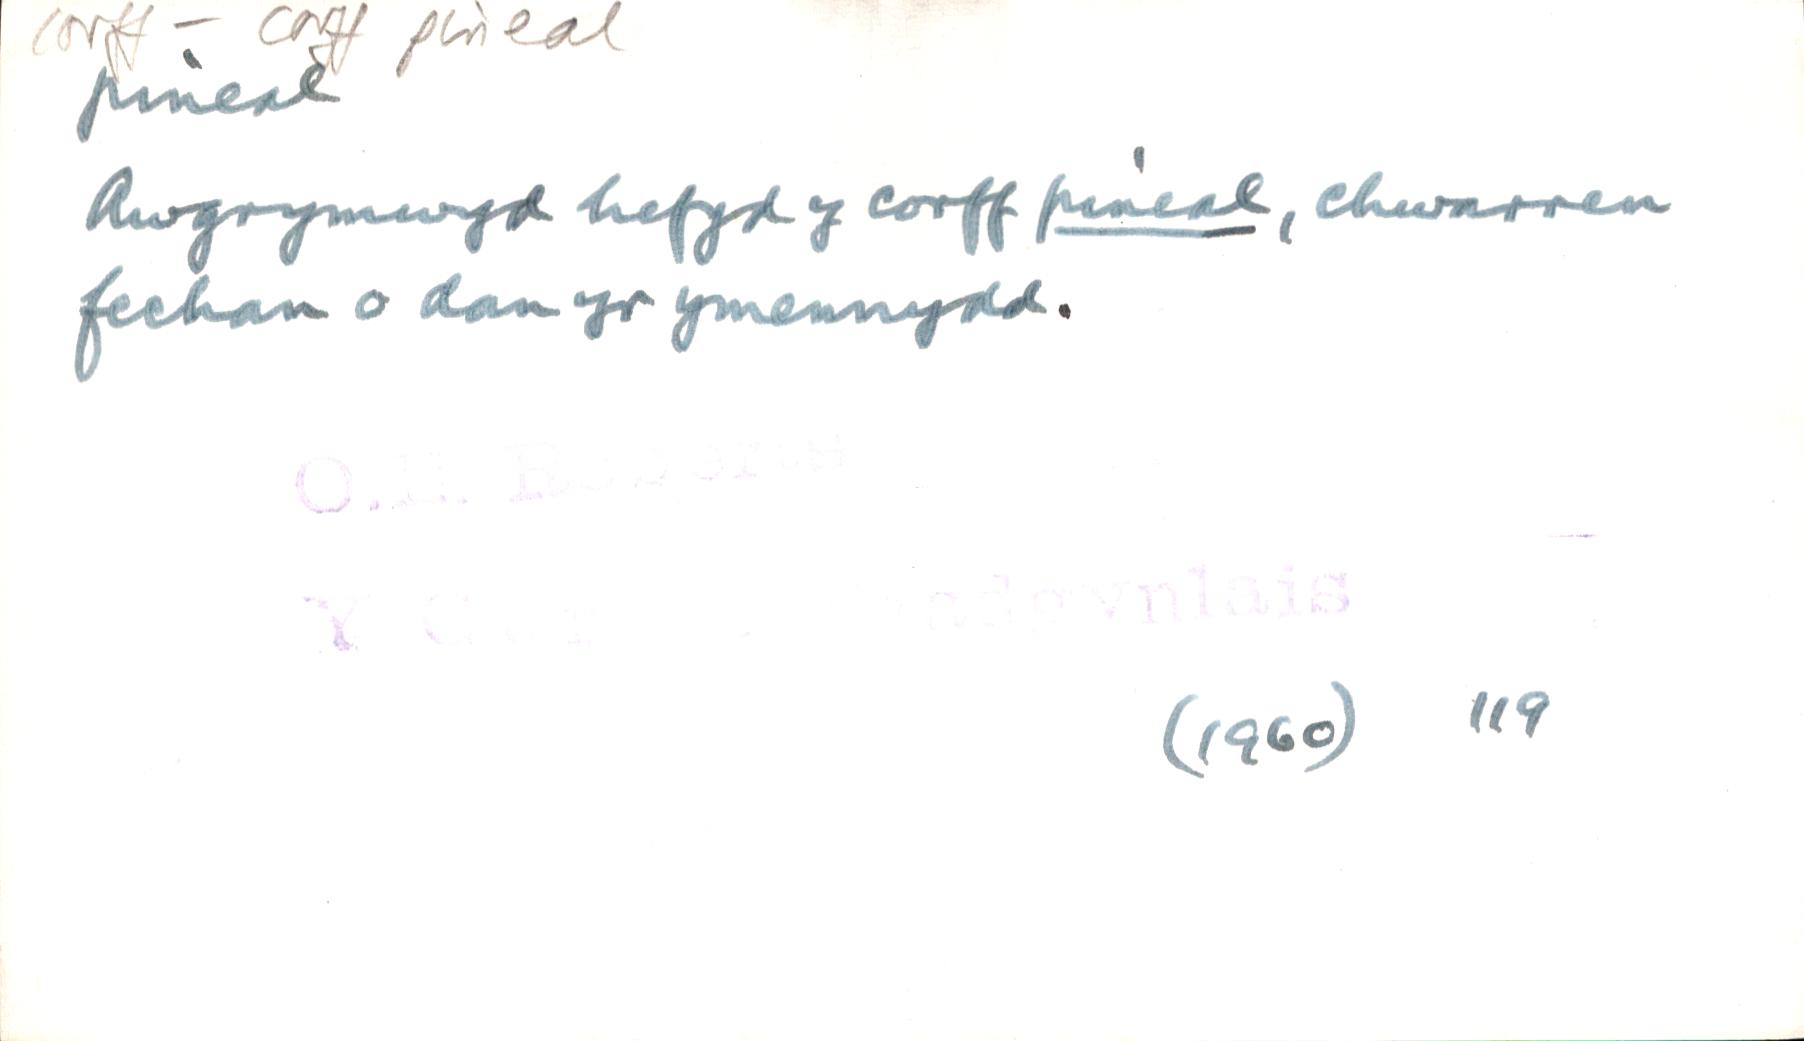 corff – corff pineal
pineal
Awgrymwyd hefyd y corff pineal, chwarren
fechan o dan yr ymennydd.
O.E. Roberts
Y
(1960) 119